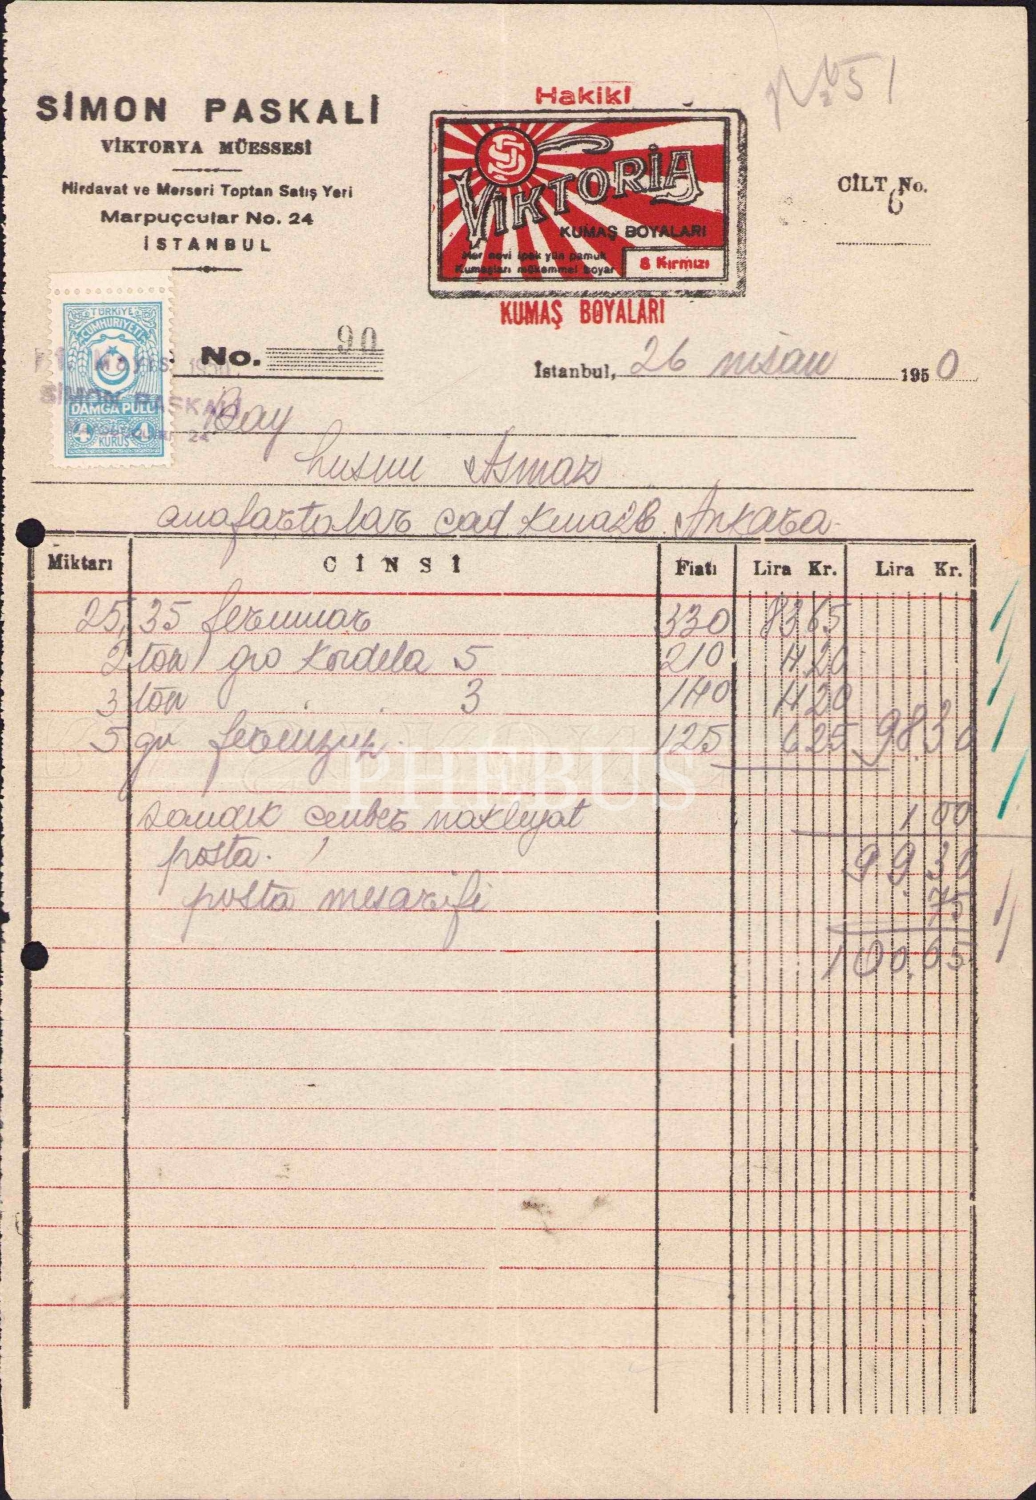 SİMON PASKALİ
VİKTORYA MÜESSESİ
Hirdavat ve Merseri Toptan Satış Yeri
Marpuççular No. 24
İSTANBUL
Hakiki
VİKTORİA
KUMAŞ BOYALARI
Her nevi ipek yün pamuk
Kumaşları mükemmel boyar
8 Kırmızı
KUMAŞ BOYALARI
No 51
CİLT No.
6
TÜRKİYE
CUMHURİYETİ
DAMGA PULU
4 KURUŞ 4
Mayıs 1950
SİMON PASKALİ
24
No. 90
İstanbul, 26 nisan 1950
Bay
Anafartalar cad Ankara
Miktarı CİNSİ Fiatı Lira Kr. Lira Kr.
25,35 fermuar 330 8365
2 ton gro kordela 5 210 420
3 ton 3 140 420
5 gr 125 625 9830
sandık çember nakliyat 100
posta. 9930
posta mesarifi 75
100.05
PHEBUS